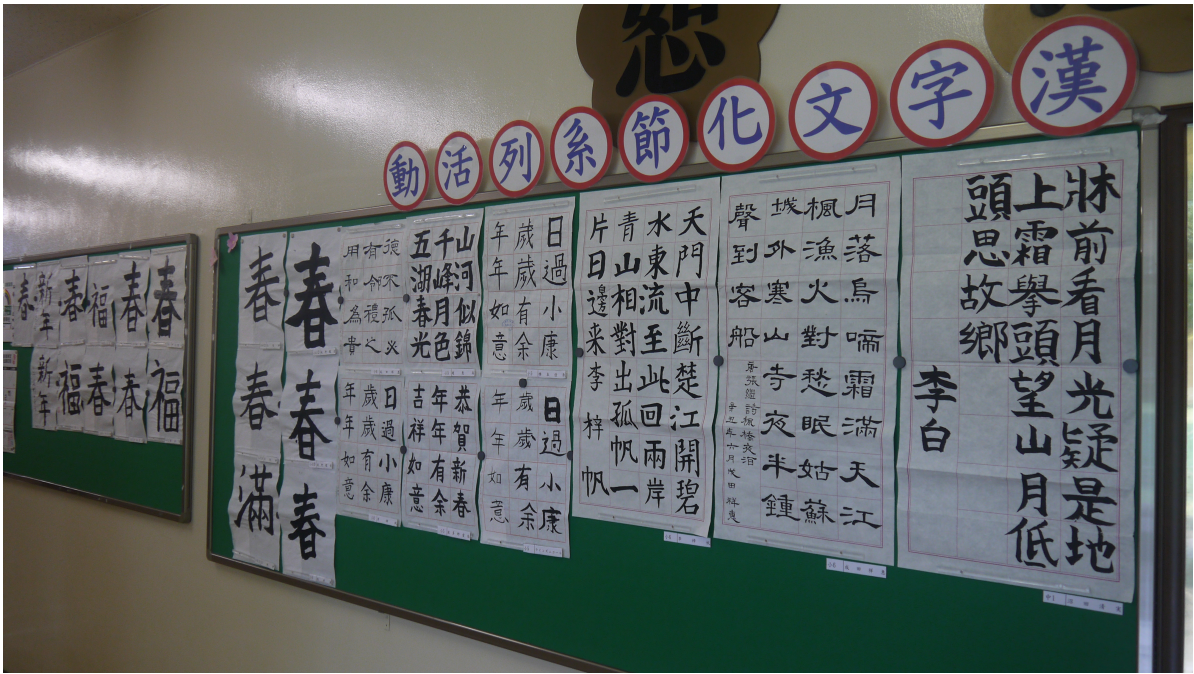 恕
漢字文化節系列活動
牀前看月光疑是地
上霜舉頭望山月低
頭思故鄉
李白
月落烏啼霜滿天江
楓漁火對愁眠姑蘇
城外寒山寺夜半鍾
聲到客船
唐張繼詩楓橋夜泊
天門中斷楚江開碧
水東流至此回兩岸
青山相對出孤帆一
片日邊来李梓帆
日過小康
歲歲有余
年年如意
日過小康
歲歲有余
年年如意
山河似錦
千峰月色
五湖春光
恭賀新春
年年有余
吉祥如意
德不孤必
有鄰禮之
用和為貴
日過小康
歲歲有余
年年如意
春
春
春
春
春
滿
春
福
春
春
福
春
春
福
新年
新年
春